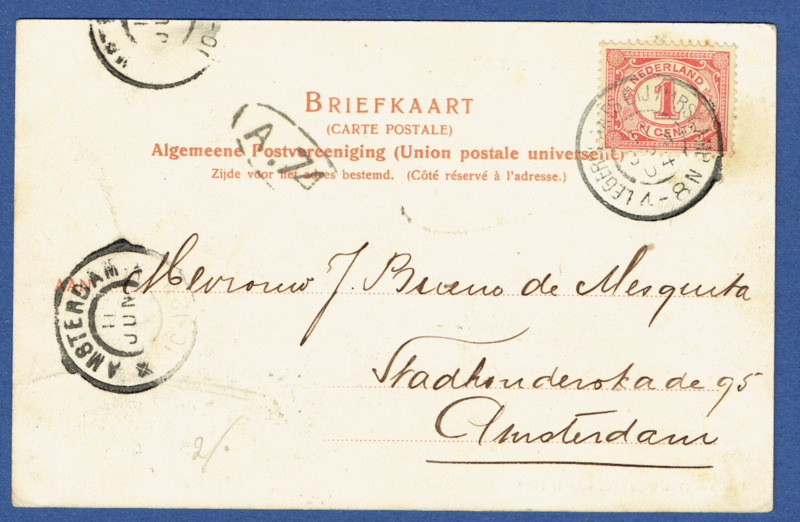 NEDERLAND
1
CENT
BRIEFKAART
(CARTE POSTALE)
Algemeene Postvereeniging (Union postale universelle)
Zijde voor het adres bestemd. (Côté réservé à l'adresse.)
A.7
8-N
AMSTERDAM
11
JUN
Mevrouw J. Bueno de Mesquita
Stadhouderskade 95
Amsterdam
2/.